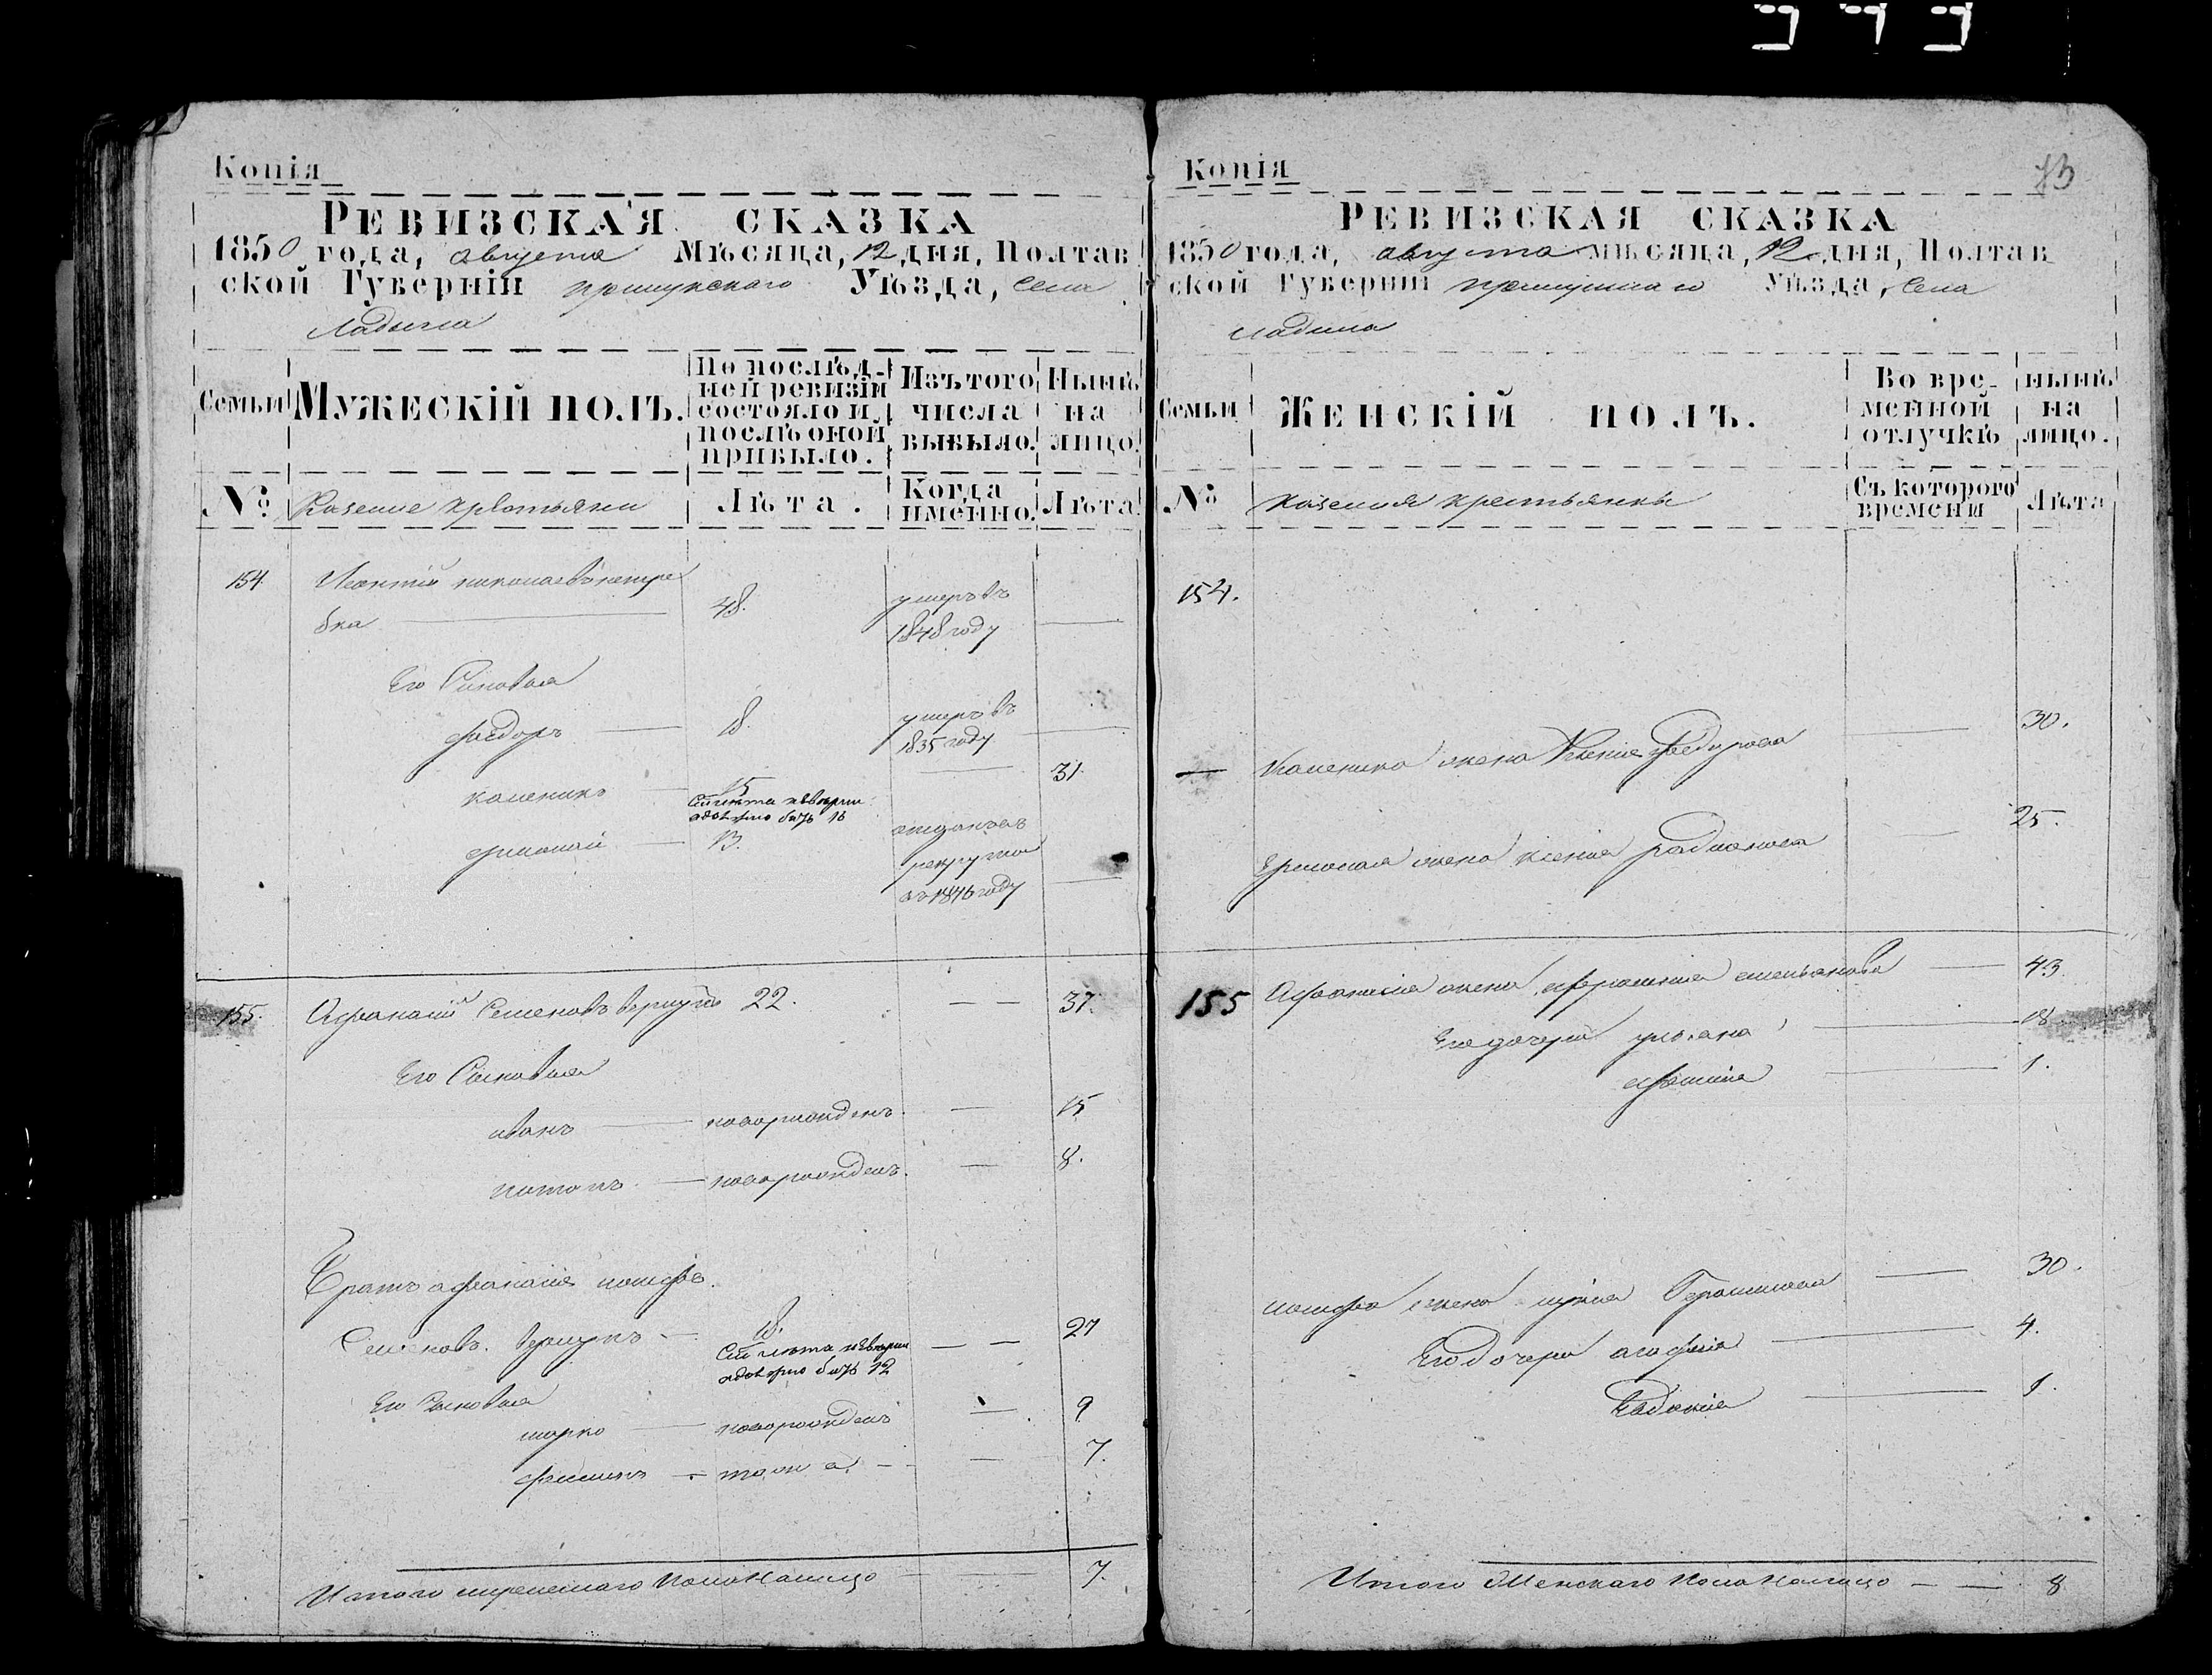 Копія
РЕВИЗСКАЯ СКАЗКА
1850 года, августа Мѣсяца, 12 дня, Полтав
ской Губерніи прилукскаго Уѣзда, села
Ладина
Семьи
Мужескій полъ.
По послѣд-
ней ревизіи
состояло и
послѣ оной
прибыло.
Изъ того
числа
выбыло.
Нынѣ
на
лицо.
№
Казенние крестьяни
Лѣта.
Когда
именно.
Лѣта
154.
Леонтій николаевъ
бка
48.
умеръ въ
1848 году
Его Синовья
федоръ
18.
умеръ въ
1835 году
каленикъ
15
31.
Сіи лѣта
быть 16
ермолай
13.
отданъ въ
рекруты
въ 1846 году
155.
Афанасій Семеновъ вершутъ 22.
37.
Его Сыновья
иванъ новорожденъ.
15
потапъ новорожденъ.
8.
Братъ афанасія иосифъ
Семеновъ
18.
27
Сіи лѣта
быть 12
Его Сыновья
марко новорожденъ
9
тож е.
7.
Итого мужескаго пола налицо 7.
Копія
73
РЕВИЗСКАЯ СКАЗКА
1850 года, августа мѣсяца, 12 дня, Полтав
ской Губерніи прилукскаго Уѣзда, села
ладина
Семьи
Женскій полъ.
Во вре-
менной
отлучкѣ
нынѣ
на
лицо.
№
казенния крестьянки
Съ котораго
времени
Лѣта
154.
Каленика жена федорова
30.
Ермолая жена ксенія радионова
25.
155
Афанасія жена ефросинія емельянова
43
Его дочери ульяна
18
ефимия
1.
иосифа жена Герасимова
30.
Его дочери агафия
4.
Евдокия
1.
Итого Женскаго пола налицо 8